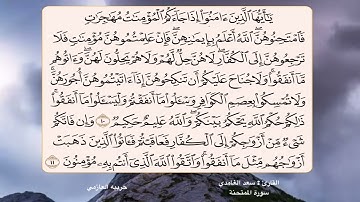 يَٰٓأَيُّهَا ٱلَّذِينَ ءَامَنُوٓا۟ إِذَا جَآءَكُمُ ٱلْمُؤْمِنَٰتُ مُهَٰجِرَٰتٍ
فَٱمْتَحِنُوهُنَّ ۖ ٱللَّهُ أَعْلَمُ بِإِيمَٰنِهِنَّ ۖ فَإِنْ عَلِمْتُمُوهُنَّ مُؤْمِنَٰتٍ فَلَا
تَرْجِعُوهُنَّ إِلَى ٱلْكُفَّارِ ۖ لَا هُنَّ حِلٌّ لَّهُمْ وَلَا هُمْ يَحِلُّونَ لَهُنَّ ۖ وَءَاتُوهُم
مَّآ أَنفَقُوا۟ ۚ وَلَا جُنَاحَ عَلَيْكُمْ أَن تَنكِحُوهُنَّ إِذَآ ءَاتَيْتُمُوهُنَّ أُجُورَهُنَّ ۚ
وَلَا تُمْسِكُوا۟ بِعِصَمِ ٱلْكَوَافِرِ وَسْـَٔلُوا۟ مَآ أَنفَقْتُمْ وَلْيَسْـَٔلُوا۟ مَآ أَنفَقُوا۟ ۚ
ذَٰلِكُمْ حُكْمُ ٱللَّهِ ۖ يَحْكُمُ بَيْنَكُمْ ۚ وَٱللَّهُ عَلِيمٌ حَكِيمٌ ١٠ وَإِن فَاتَكُمْ
شَىْءٌ مِّنْ أَزْوَٰجِكُمْ إِلَى ٱلْكُفَّارِ فَعَاقَبْتُمْ فَـَٔاتُوا۟ ٱلَّذِينَ ذَهَبَتْ
أَزْوَٰجُهُم مِّثْلَ مَآ أَنفَقُوا۟ ۚ وَٱتَّقُوا۟ ٱللَّهَ ٱلَّذِىٓ أَنتُم بِهِۦ مُؤْمِنُونَ ١١
القارئ : سعد الغامدي
سورة الممتحنة
خربيه العازمي